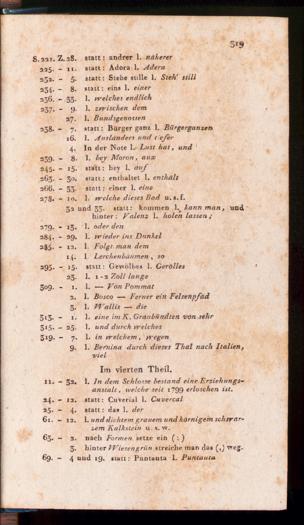 519
S. 221. Z. 28. statt: andrer l. näherer
225. - 11. statt: Adora l. Adera
232. - 5. statt: Stehe stille l. Steh' still
234. - 8. statt: eins l. einer
236. - 33. l. welches endlich
237. - 9. l. zwischen dem
27. l. Bundsgenossen
238. - 7. statt: Bürger ganz l. Bürgerganzen
16. l. Ausländers und
4. In der Note l. Lust hat, und
239. - 8. l. bey Moron, aux
245. - 15. statt: bey l. auf
265. - 30. statt: enthaltet l. enthält
266. - 33. statt: einer l. eine
278. - 10. l. welche dieses Bad u. s. f.
32 und 33. statt: kommen l. kann man, und
hinter: Valenz l. holen lassen;
279. - 13. l. oder den
284. - 29. l. wieder ins Dunkel
285. - 12. l. Folgt man dem
14. l. Lerchenbäumen, so
295. - 15. statt: Gewölbes l. Gerölles
23. l. 1-2 Zoll lange
309. - 1. l. — Von Pommat
2. l. Bosco — Ferner ein Felsenpfad
3. l. Wallis — die
313. - 1. l. eine im K. Graubündten von sehr
315. - 25. l. und durch welches
319. - 7. l. in welchem, wegen
9. l. Bernina durch dieses Thal nach Italien,
viel
Im vierten Theil.
11. - 32. l. In dem Schlosse bestand eine Erziehungs-
anstalt, welche seit 1799 erloschen ist.
24. - 12. statt: Cuverial l. Cuvercal
25. - 4. statt: das l. der
61. - 12. l. und dichtem grauem und körnigem schwar-
zem Kalkstein u. s. w.
63. - 2. nach Formen setze ein (:)
3. hinter Wiesengrün streiche man das (,) weg.
69. - 4 und 19. statt: Puntauta l. Puntauta